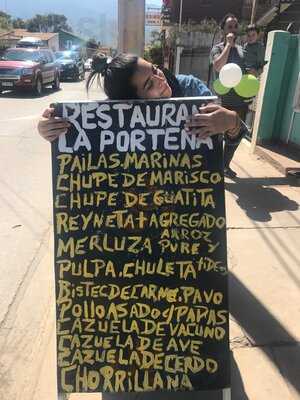 RESTAURA
LA PORTEÑA
PAILAS MARINAS
CHUPE DE MARISCO
CHUPE DE GUATITA
REYNETA + AGREGADO
MERLUZA ARROZ
PURE Y
PULPA, CHULETA FIDEO
BISTEC DE CARNE, PAVO
POLLO ASADO Y PAPAS
CAZUELA DE VACUNO
CAZUELA DE AVE
CAZUELA DE CERDO
CHORRILLANA